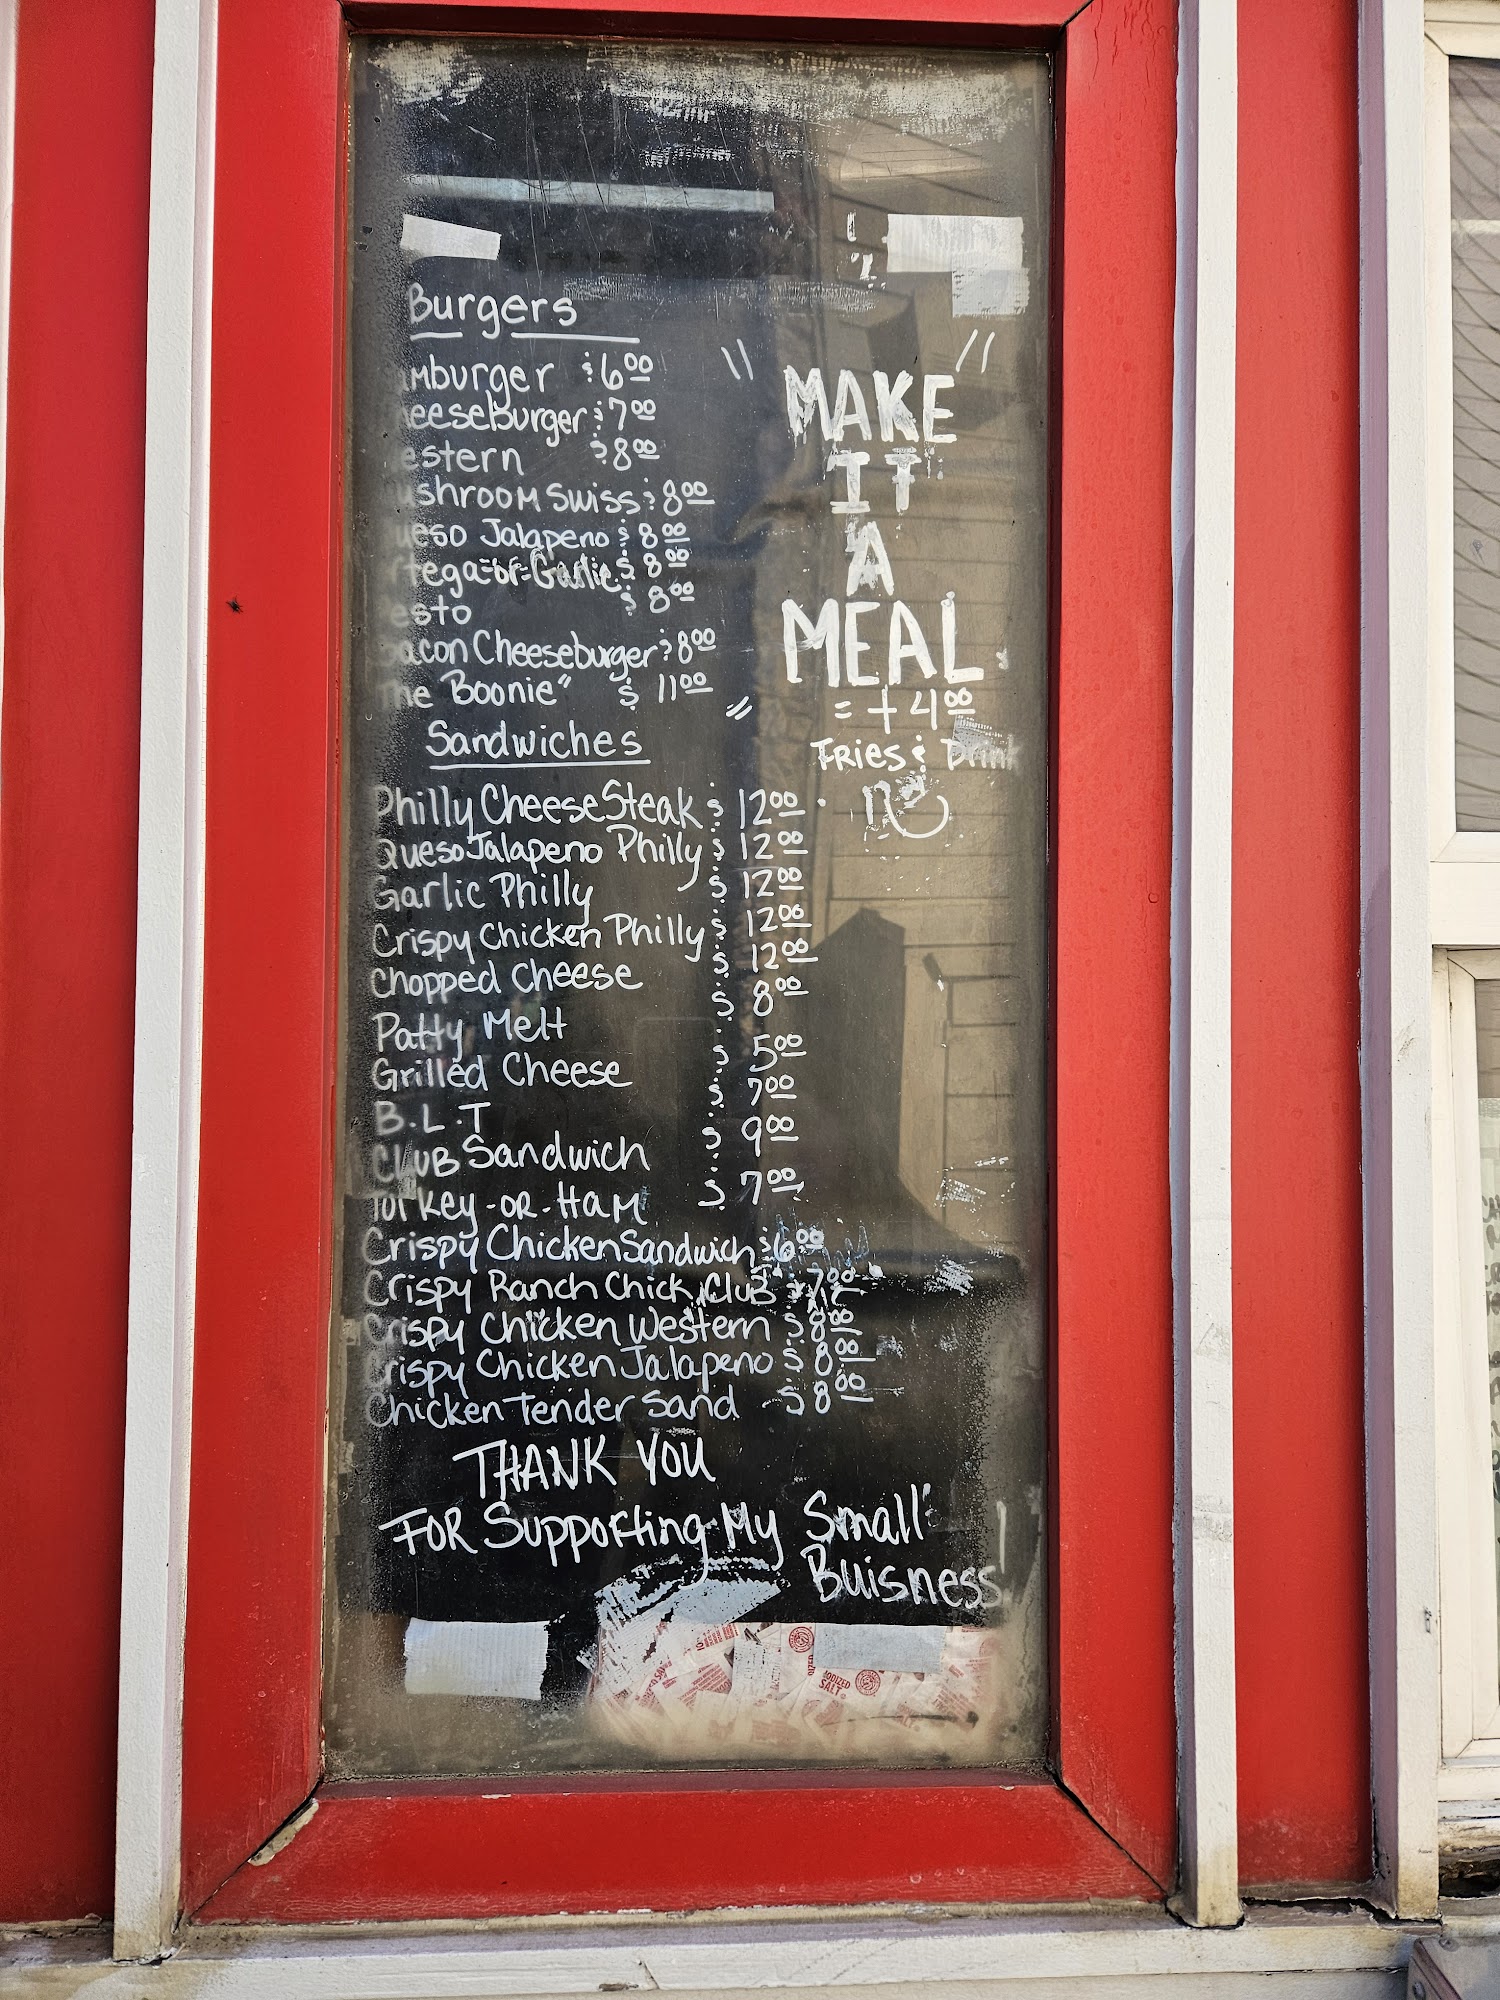 Burgers
mburger $6.00
eeseburger $7.00
estern $8.00
ushroom Swiss $8.00
ueso Jalapeno $8.00
rtega-or-Garlic $8.00
esto $8.00
acon Cheeseburger $8.00
he "Boonie" $ 11.00
"MAKE
IT
A
MEAL"
= + 4.00
Fries & Drink
Sandwiches
Philly Cheese Steak $ 12.00
Queso Jalapeno Philly $ 12.00
Garlic Philly $ 12.00
Crispy Chicken Philly $ 12.00
Chopped Cheese $ 12.00
Patty Melt $ 8.00
Grilled Cheese $ 5.00
B.L.T $ 7.00
CLUB Sandwich $ 9.00
Turkey-OR-HaM $ 7.00
Crispy Chicken Sandwich $6.00
Crispy Ranch Chick Club
Crispy Chicken Western $ 8.00
Crispy Chicken Jalapeno $ 8.00
Chicken Tender Sand $ 8.00
THANK YOU
FOR Supporting My Small
Buisness
IODIZED
SALT